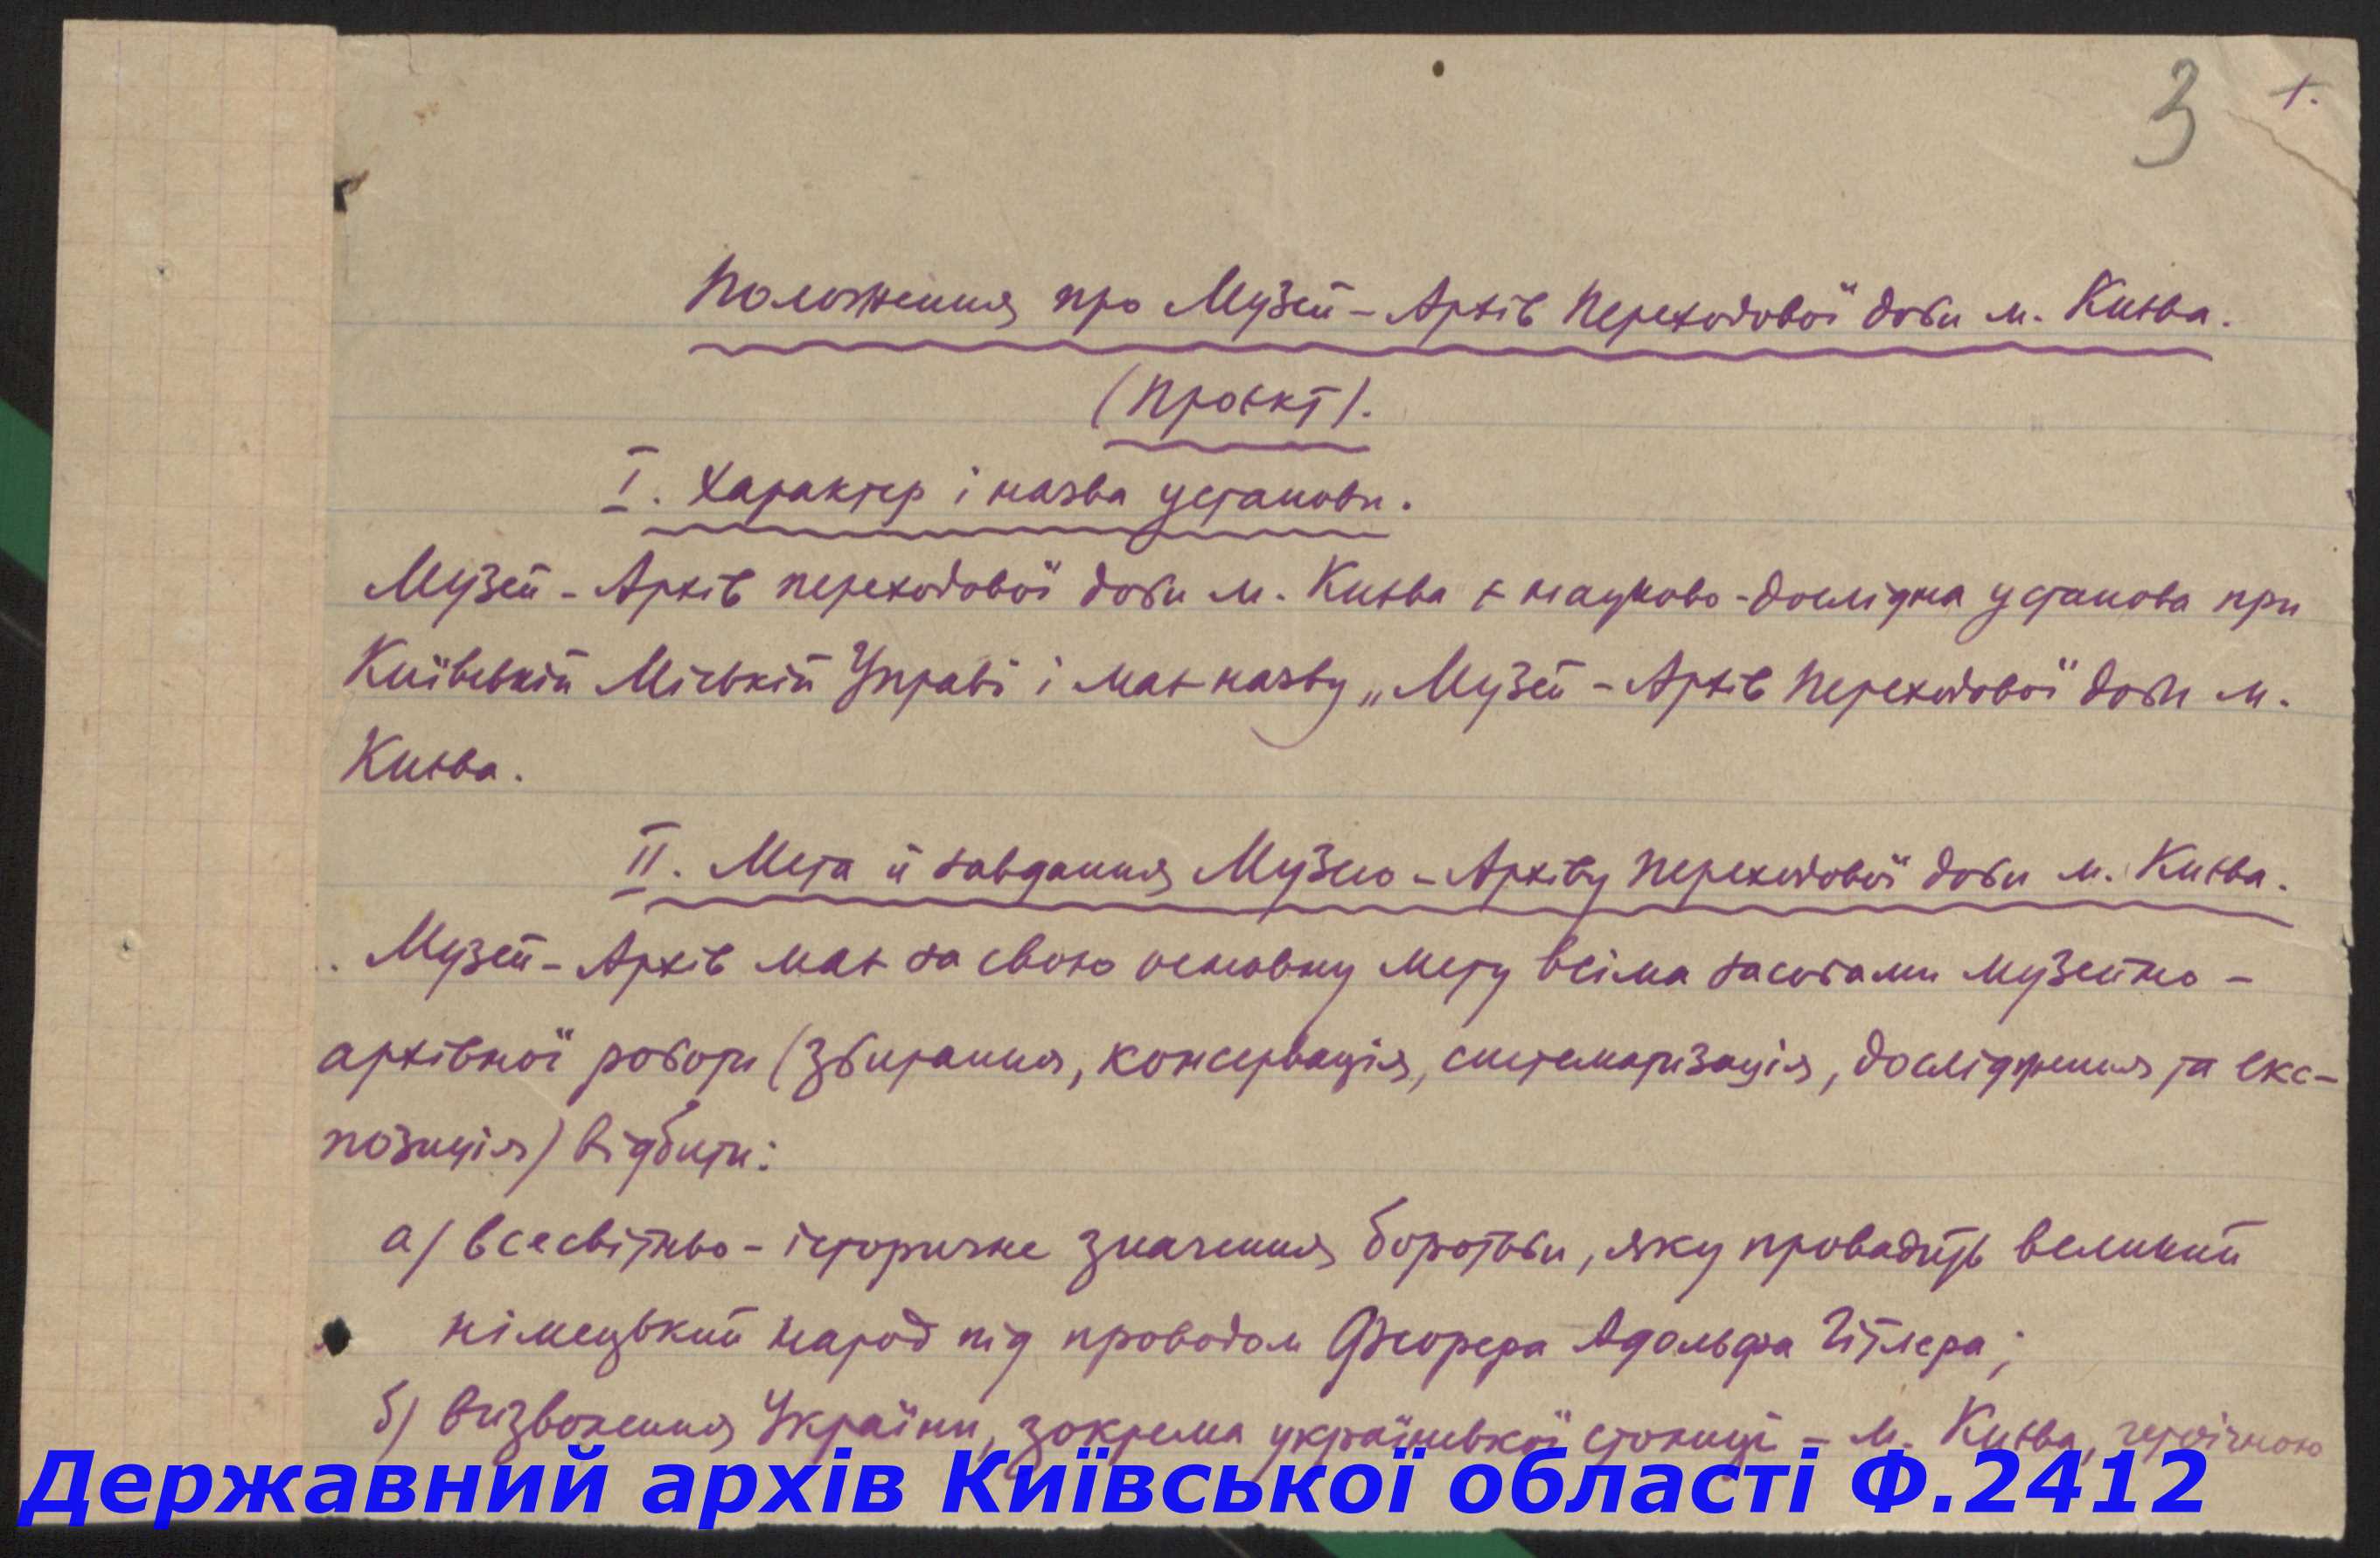 3 1.
Положення про Музей-Архів Переходової доби м. Києва.
(Проєкт).
I. Характер і назва установи.
Музей-Архів переходової доби м. Києва є науково-дослідна установа при
Київській Міській Управі і має назву „Музей-Архів Переходової доби м.
Києва.
II. Мета й завдання Музею-Архіву Переходової доби м. Києва.
Музей-Архів має за свою основну мету всіма засобами музейно-
архівної роботи (збирання, консервація, систематизація, дослідження та екс-
позиція) відбити:
а) всесвітньо-історичне значення боротьби, яку провадить великий
німецький народ під проводом Фюрера Адольфа Гітлера;
б) визволення України, зокрема української столиці - м. Києва, героїчною
Державний архів Київської області Ф.2412